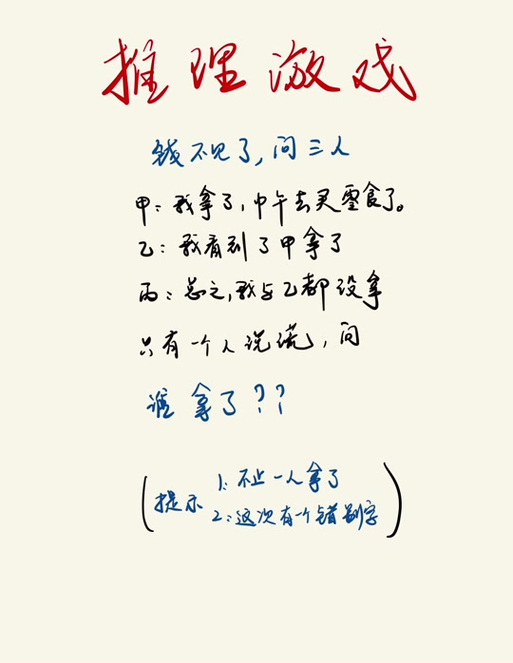 推理游戏
钱不见了,问三人
甲:我拿了,中午去买零食了。
乙:我看到了甲拿了
丙:总之,我与乙都没拿
只有一个人说谎,问
谁拿了??
(提示 1:不止一人拿了
2:这次有一个错别字)